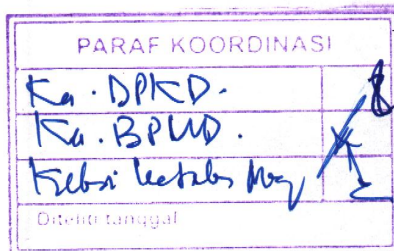 PARAF KOORDINASI
Ka. DPKD.
Ka. BPMD.
Diteliti tanggal